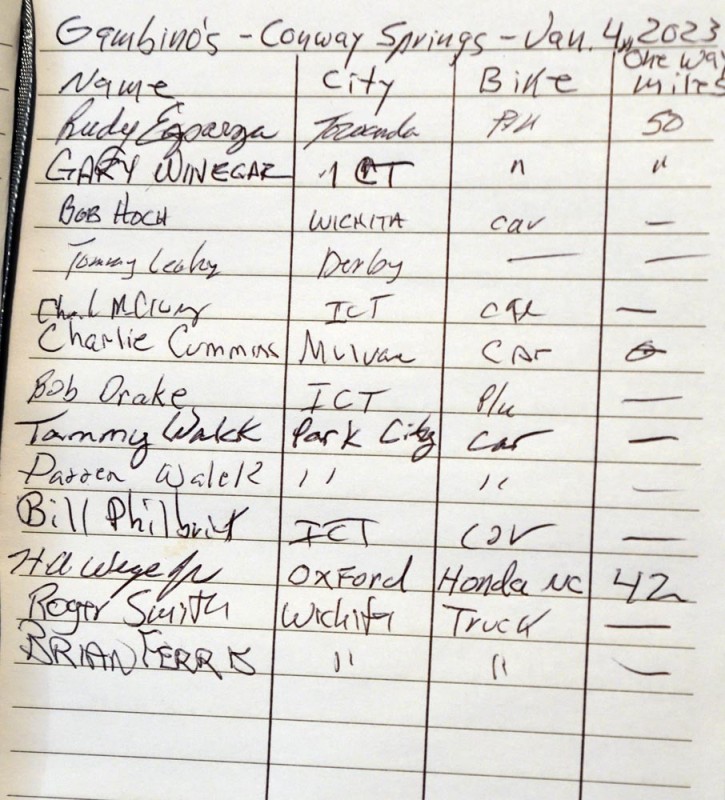 Gambino's - Conway Springs - Jan. 4, 2023
Name City Bike One Way miles
Rudy Esparza Towanda P/U 50
GARY WINEGAR ICT " "
BOB HOCH WICHITA car —
Tommy Leahy Derby — —
McClury ICT car —
Charlie Cummins Mulvane CAR
Bob Drake ICT P/u —
Tammy Walck Park City car —
Darren Walck " " —
Bill Philbrick ICT car —
Oxford Honda NC 42
Roger Smith Wichita Truck —
BRIAN FERRIS " " —